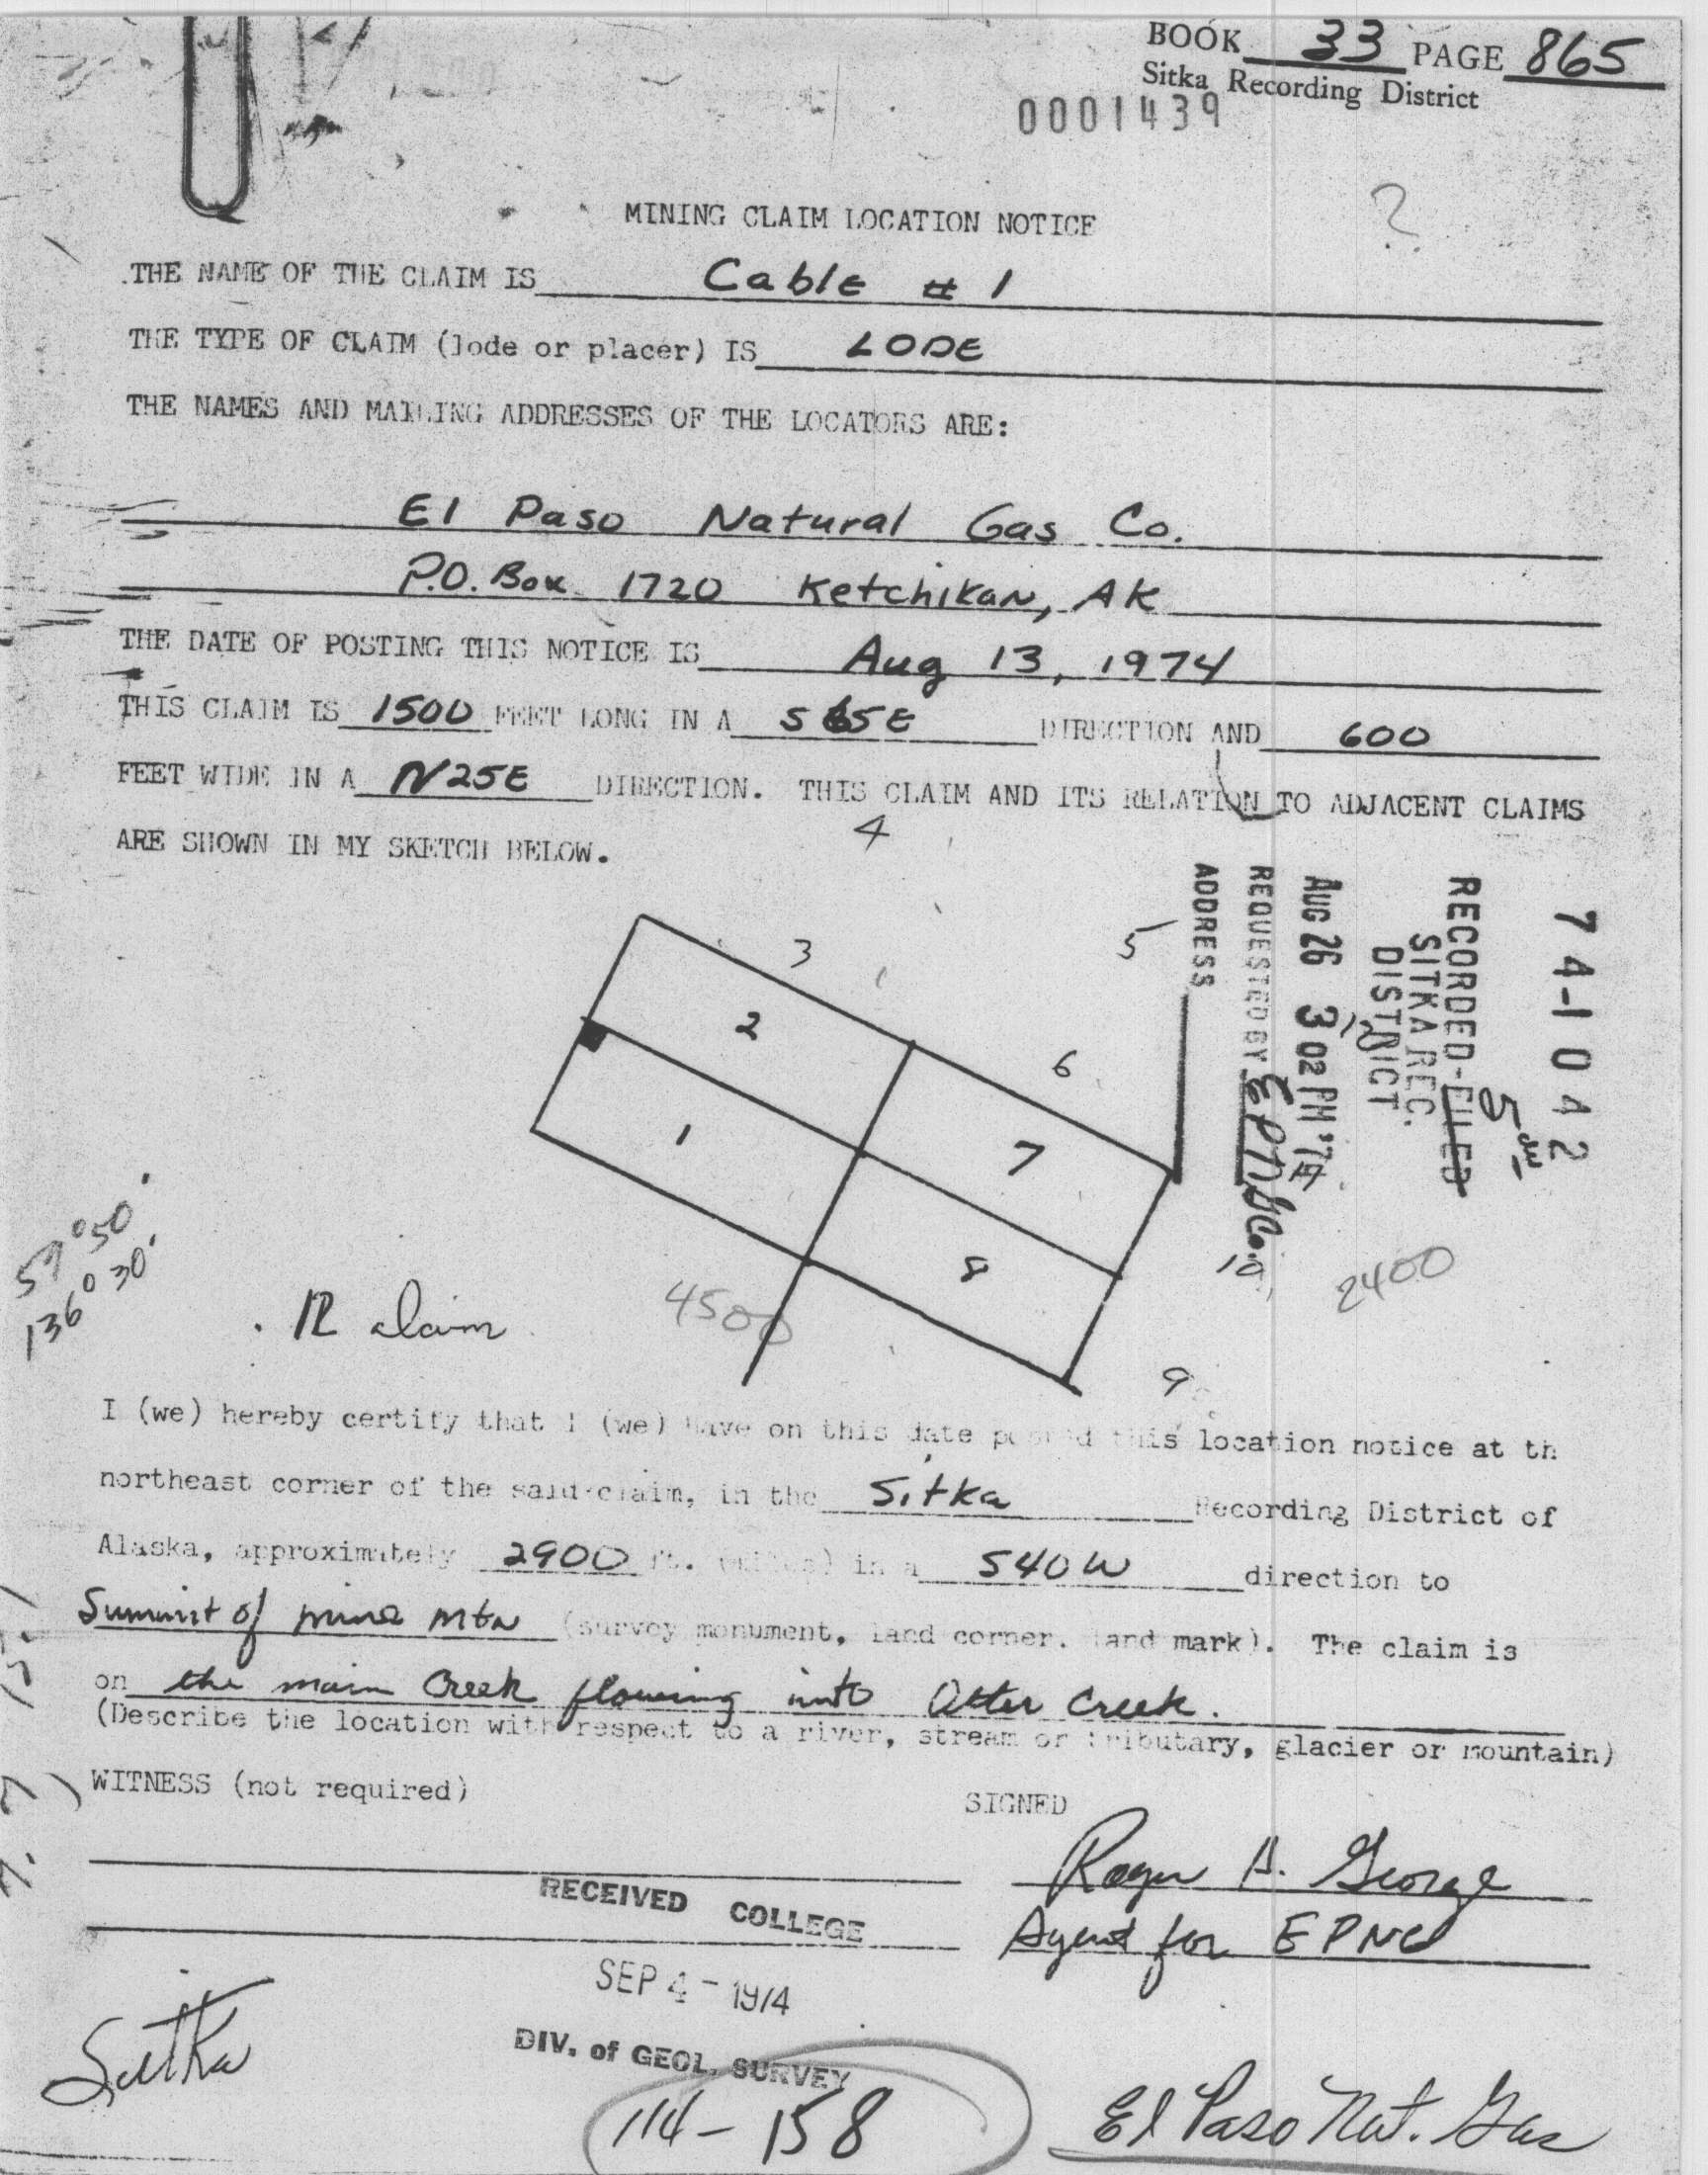 BOOK 33 PAGE 865
Sitka Recording District
0001439
MINING CLAIM LOCATION NOTICE
?
THE NAME OF THE CLAIM IS Cable # 1
THE TYPE OF CLAIM (lode or placer) IS LODE
THE NAMES AND MAILING ADDRESSES OF THE LOCATORS ARE:
El Paso Natural Gas Co.
P.O. Box 1720 Ketchikan, AK
THE DATE OF POSTING THIS NOTICE IS Aug 13, 1974
THIS CLAIM IS 1500 FEET LONG IN A S65E DIRECTION AND 600
FEET WIDE IN A N25E DIRECTION. THIS CLAIM AND ITS RELATION TO ADJACENT CLAIMS
ARE SHOWN IN MY SKETCH BELOW.
4
3
5
2
6
1
7
8
10
9
4500
2400
74-1042
RECORDED-FILED
SITKA REC.
DISTRICT
AUG 26 3 02 PM '74
REQUESTED BY EPNGCo.
ADDRESS
57°50'
136°30'
12 claim
I (we) hereby certify that I (we) have on this date posted this location notice at th
northeast corner of the said claim, in the Sitka Recording District of
Alaska, approximately 2900 ft. (miles) in a S40W direction to
Summit of mine Mtn (survey monument, land corner, land mark). The claim is
on the main Creek flowing into Otter Creek.
(Describe the location with respect to a river, stream or tributary, glacier or mountain)
WITNESS (not required)
SIGNED
Roger A. George
Agent for EPNG
RECEIVED COLLEGE
SEP 4 - 1974
DIV. of GEOL. SURVEY
Sitka
114-158
El Paso Nat. Gas